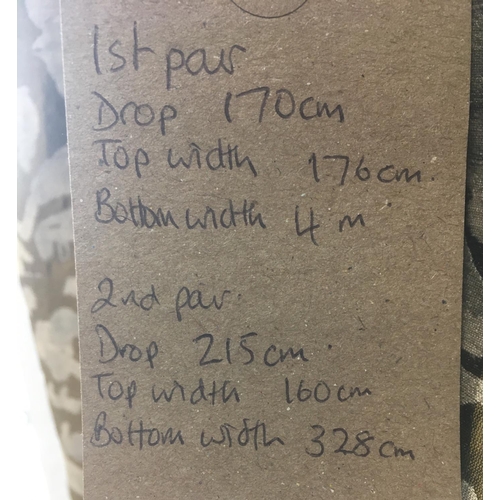 1st pair
Drop 170cm
Top width 176cm.
Bottom width 4 m
2nd pair.
Drop 215cm.
Top width 160cm
Bottom width 328cm